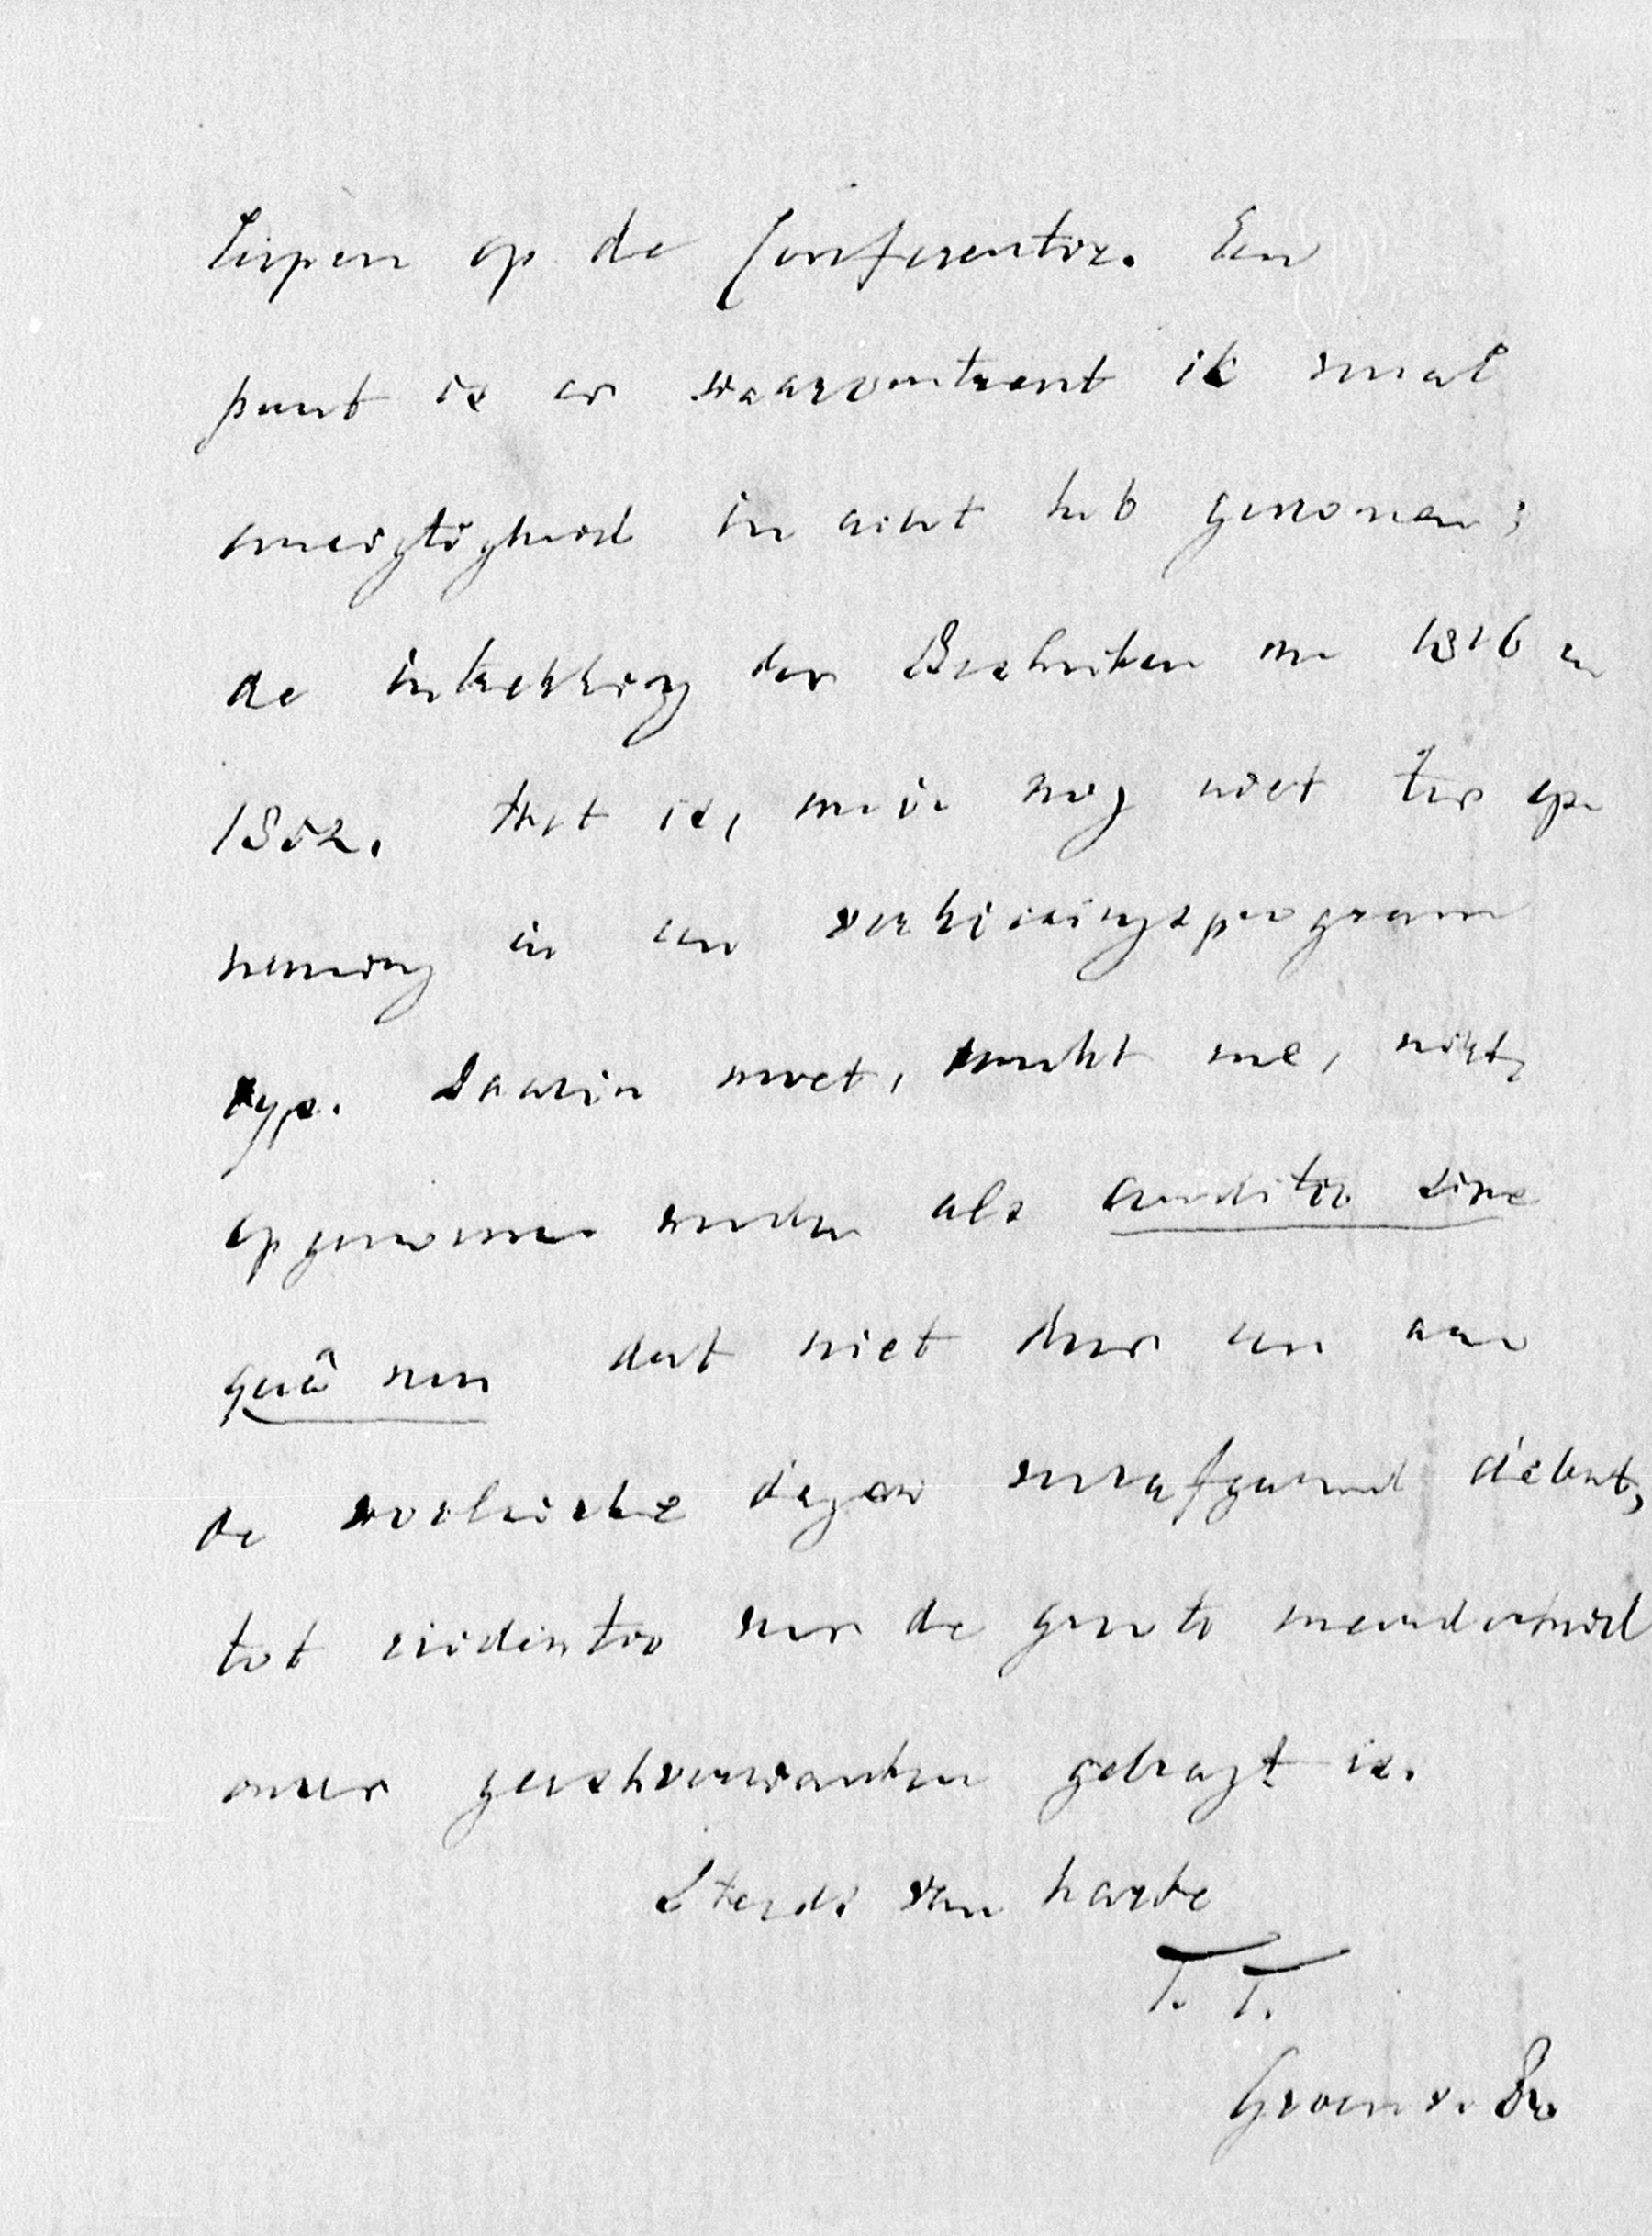 liepen op de Conferentie. Een
punt is er waaromtrent ik veel
omzigtigheid in acht heb genomen;
de intrekking der Besluiten van 1816 en
1852. Het is, m.i. nog niet ter op
neming in een verkiezingsprogram
ryp. Daarin moet, dunkt me, niets
opgenomen worden als conditio sine
quâ non dat niet door een aan
de politieke dagen voorafgaand debat,
tot evidentie voor de groote meerderheid
onzer geestverwanten gebragt is.
Steeds van harte
T. T.
Groen v. Pr.